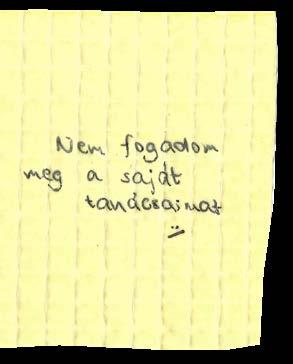 Nem fogadom
meg a saját
tanácsaimat